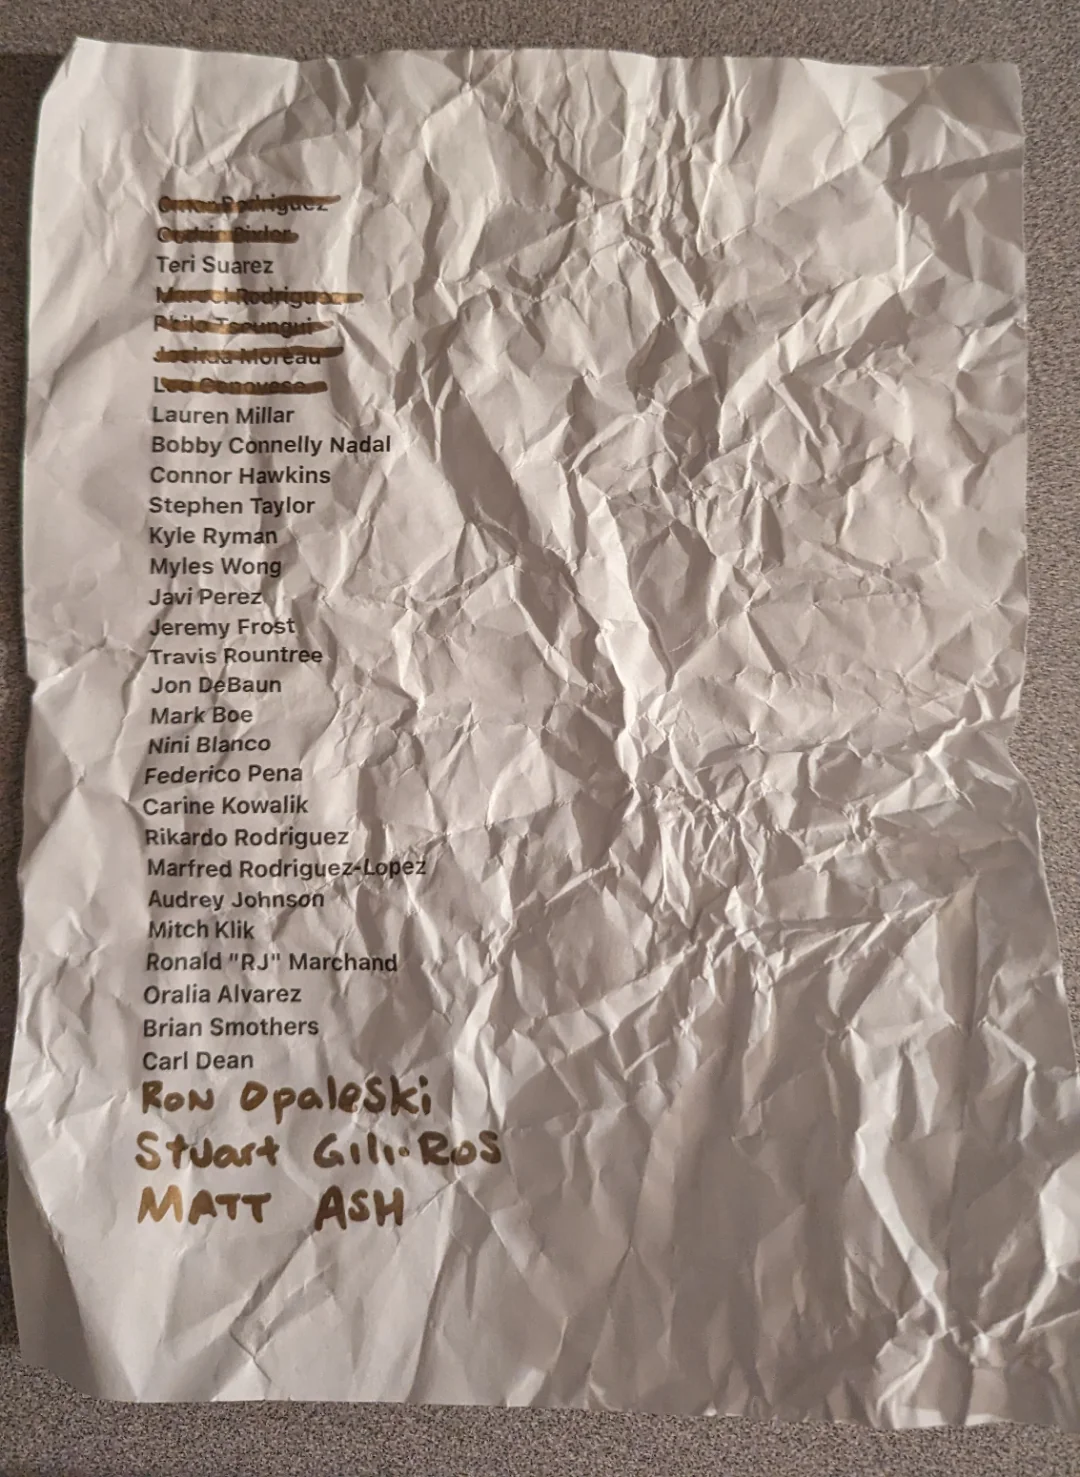 Omar Rodriguez
Cedric Bixler
Teri Suarez
Marcel Rodriguez
Philo Tsoungui
Joshua Moreau
Leo Genovese
Lauren Millar
Bobby Connelly Nadal
Connor Hawkins
Stephen Taylor
Kyle Ryman
Myles Wong
Javi Perez
Jeremy Frost
Travis Rountree
Jon DeBaun
Mark Boe
Nini Blanco
Federico Pena
Carine Kowalik
Rikardo Rodriguez
Marfred Rodriguez-Lopez
Audrey Johnson
Mitch Klik
Ronald "RJ" Marchand
Oralia Alvarez
Brian Smothers
Carl Dean
RON Opaleski
Stuart Gili-Ros
MATT ASH